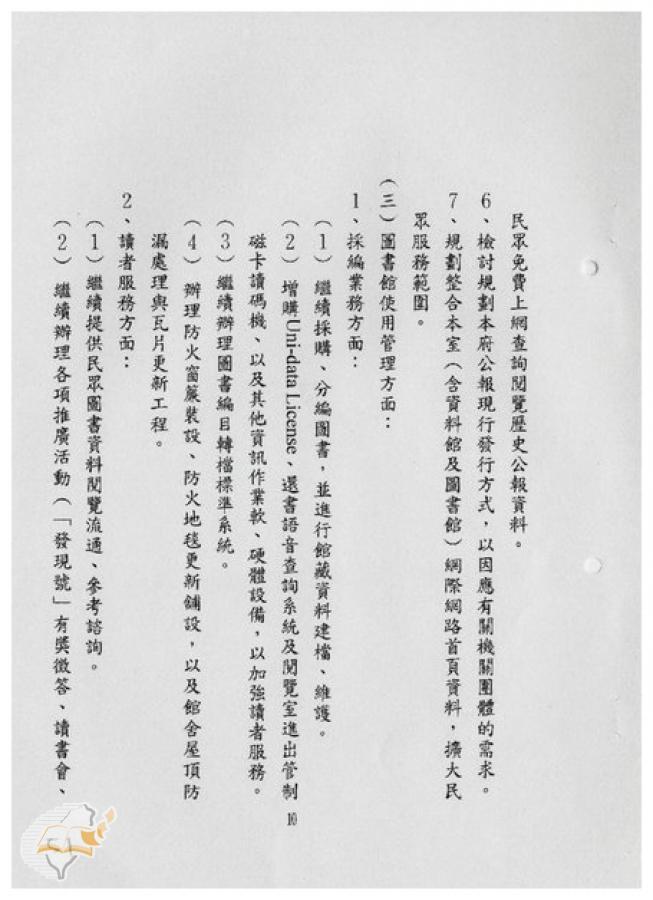 民眾免費上網查詢閱覽歷史公報資料。
6、檢討規劃本府公報現行發行方式，以因應有關機關團體的需求。
7、規劃整合本室（含資料館及圖書館）網際網路首頁資料，擴大民
眾服務範圍。
（三）圖書館使用管理方面：
1、採編業務方面：
（1）繼續採購、分編圖書，並進行館藏資料建檔、維護。
（2）增購Uni-data License、還書語音查詢系統及閱覽室進出管制
磁卡讀碼機、以及其他資訊作業軟、硬體設備，以加強讀者服務。
（3）繼續辦理圖書編目轉檔標準系統。
（4）辦理防火窗簾裝設、防火地毯更新舖設，以及館舍屋頂防
漏處理與瓦片更新工程。
2、讀者服務方面：
（1）繼續提供民眾圖書資料閱覽流通、參考諮詢。
（2）繼續辦理各項推廣活動（「發現號」有獎徵答、讀書會、
10